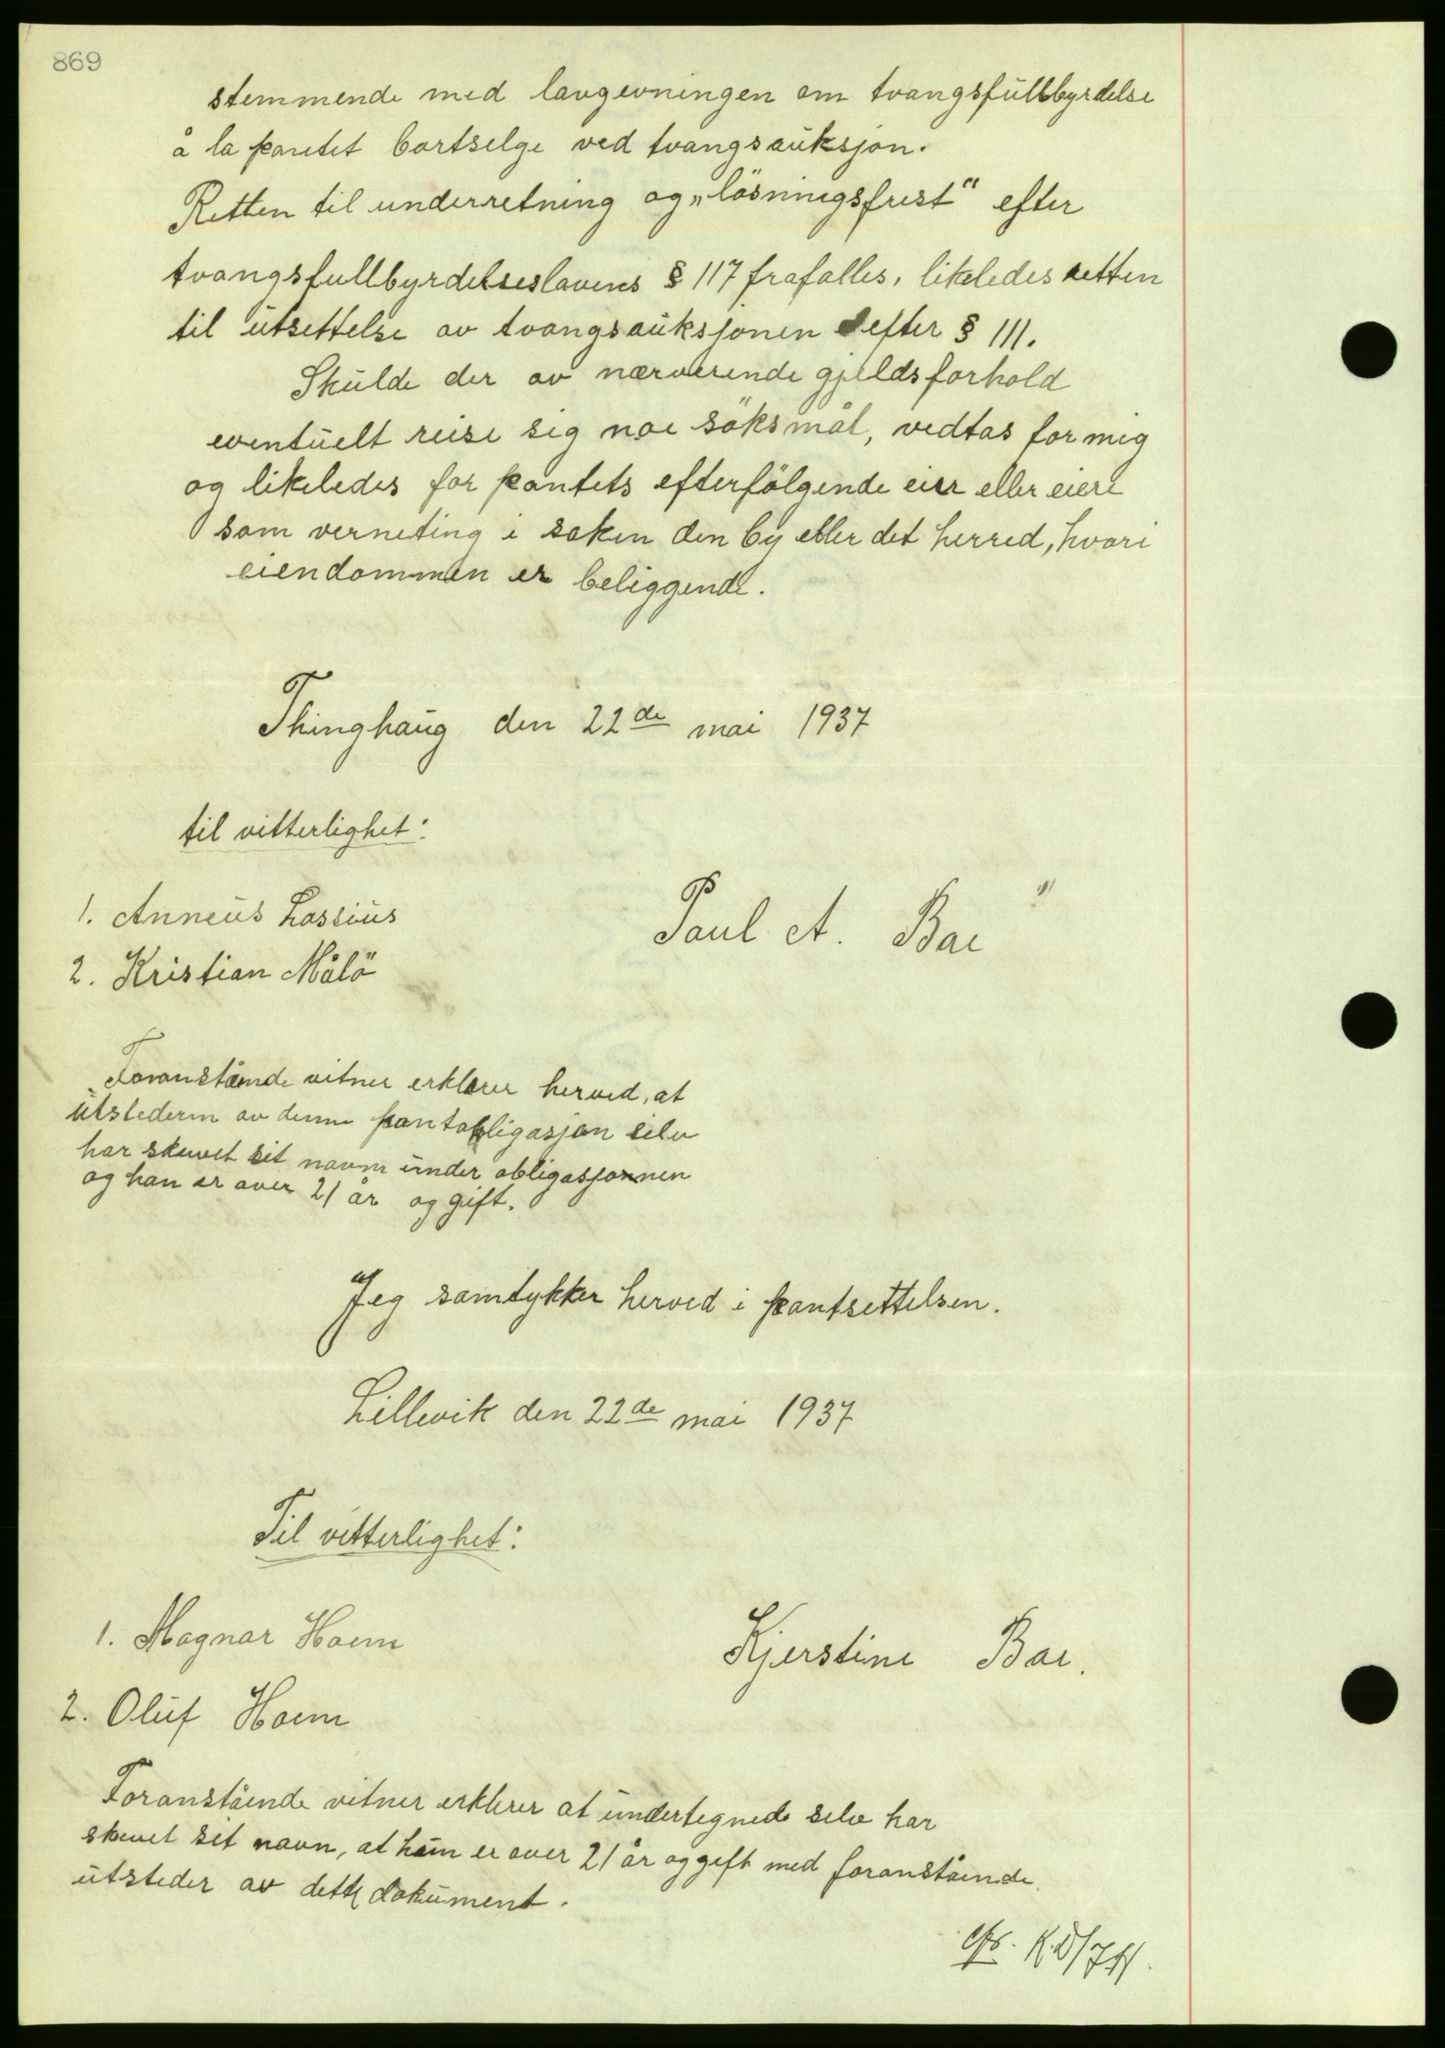 869
stemmende med lovgevningen om tvangsfullbyrdelse
å la pantet bortselge ved tvangsauksjon.
Retten til underretning og „lösningsfrist“ efter
tvangsfullbyrdelseslovens § 117 frafalles, likeledes retten
til utsettelse av tvangsauksjonen efter § 111.
Skulde der av nærverende gjeldsforhold
eventuelt reise sig noe söksmål, vedtas for mig
og likeledes for pantets efterfölgende eier eller eiere
som verneting i saken den by eller det herred, hvori
eiendommen er beliggende.
Thinghaug den 22de mai 1937
til vitterlighet:
1. Anneus Lossius
Paul A. Bae
2. Kristian Målö
Foranstående vitner erklærer herved, at
utstederen av denne pantobligasjon selv
har skrevet sit navn under obligasjonnen
og han er over 21 år og gift.
Jeg samtykker herved i pantsettelsen.
Lillevik den 22de mai 1937
Til vitterlighet:
1. Magnar Hoem
Kjerstine Bae.
2. Oluf Hoem
Foranstående vitner erklerer at undertegnede selv har
skrevet sit navn, at hun er over 21 år og gift med foranstående
utsteder av dette dokument.